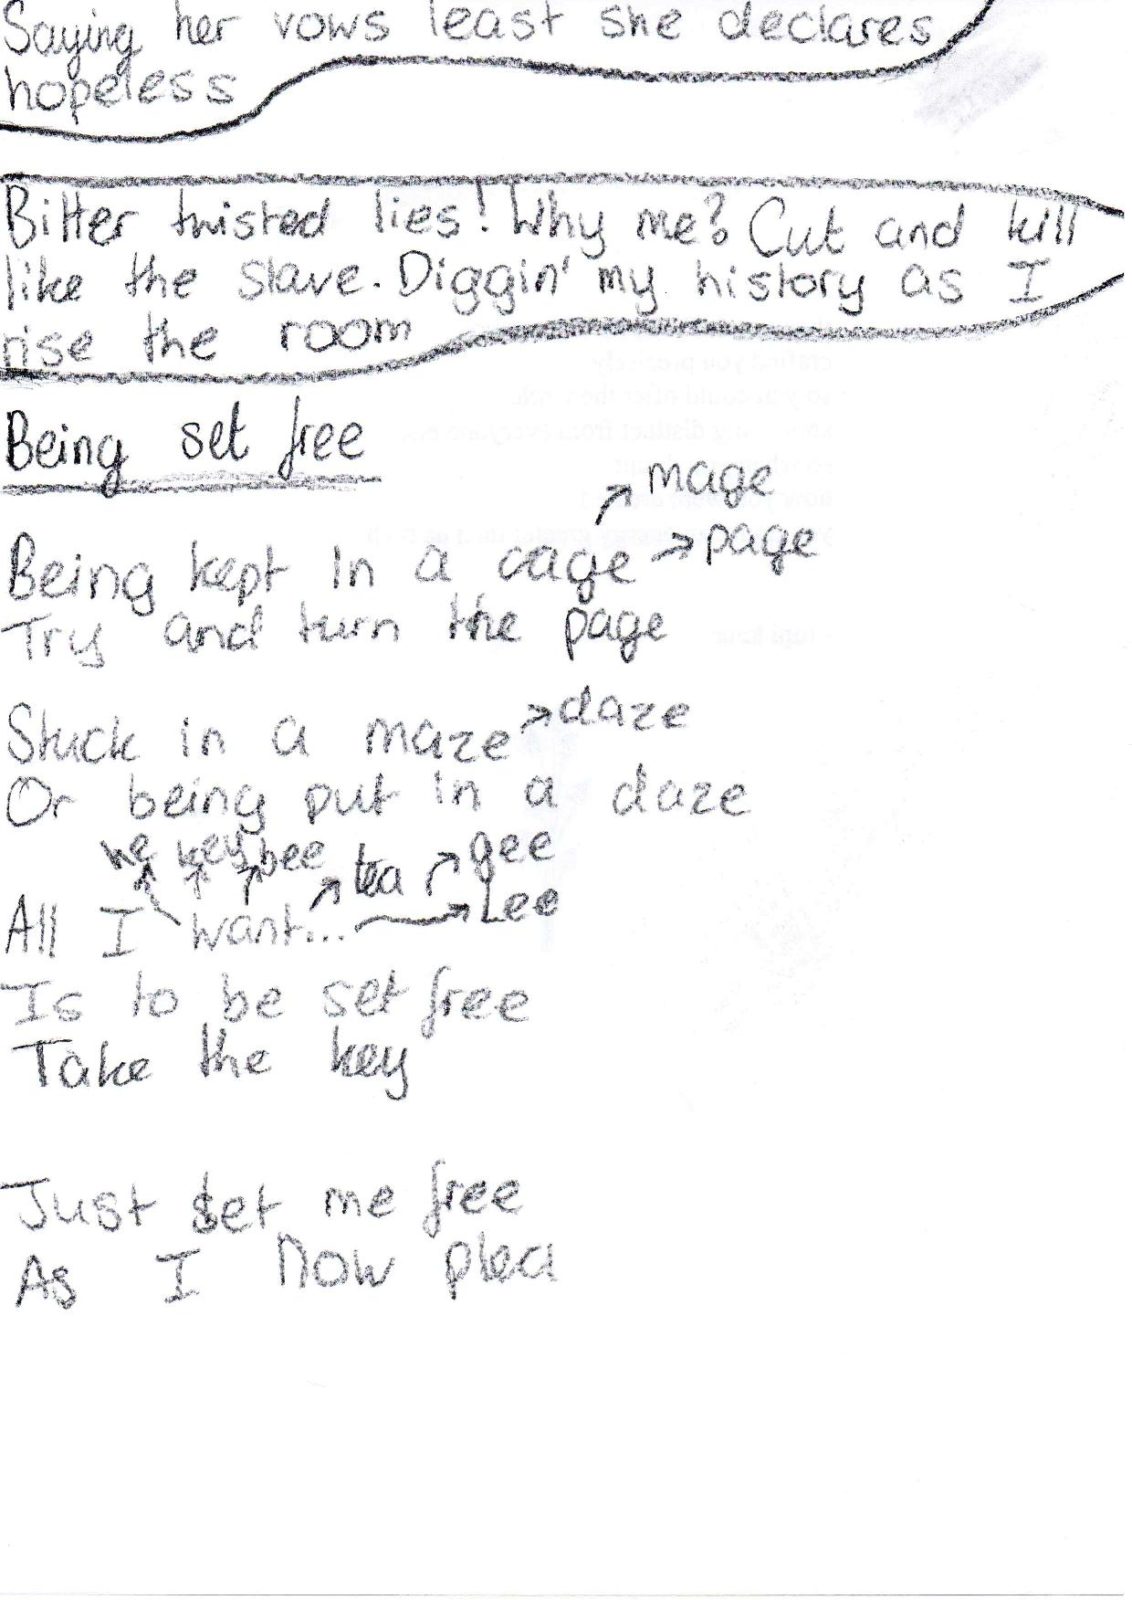 Saying her vows least she declares
hopeless
Bitter twisted lies! Why me? Cut and kill
like the slave. Diggin' my history as I
rise the room
Being set free
mage
Being kept in a cage → page
Try and turn the page
Stuck in a maze → daze
Or being put in a daze
he key bee tea gee
All I want... Lee
Is to be set free
Take the key
Just set me free
As I now plea